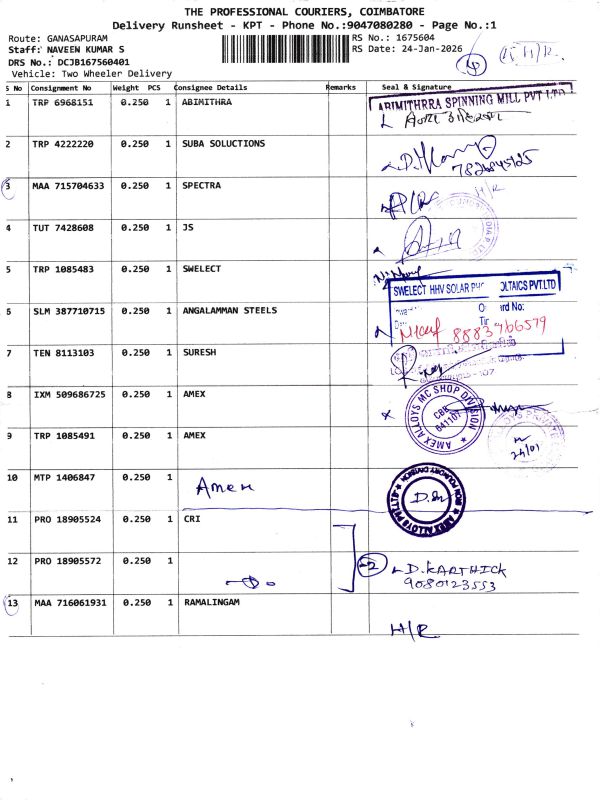 THE PROFESSIONAL COURIERS, COIMBATORE
Delivery Runsheet - KPT - Phone No.:9047080280 - Page No.:1
Route: GANASAPURAM
RS No.: 1675604
Staff: NAVEEN KUMAR S
RS Date: 24-Jan-2026
DRS No.: DCJB167560401
Vehicle: Two Wheeler Delivery
S No Consignment No Weight PCS Consignee Details Remarks Seal & Signature
1 TRP 6968151 0.250 1 ABIMITHRA
ABIMITHRRA SPINNING MILL PVT LTD
2 TRP 4222220 0.250 1 SUBA SOLUCTIONS
7826845125
3 MAA 715704633 0.250 1 SPECTRA
H/R
4 TUT 7428608 0.250 1 JS
5 TRP 1085483 0.250 1 SWELECT
SWELECT HHV SOLAR PH OLTAICS PVT.LTD
6 SLM 387710715 0.250 1 ANGALAMMAN STEELS
8883766579
7 TEN 8113103 0.250 1 SURESH
8 IXM 509686725 0.250 1 AMEX
AMEX ALLOYS MC SHOP DIVISION
CBE
641107
9 TRP 1085491 0.250 1 AMEX
24/01
10 MTP 1406847 0.250 1 Amex
AMEX ALLOYS PVT LTD
IRON FOUNDRY DIVISION
11 PRO 18905524 0.250 1 CRI
12 PRO 18905572 0.250 1
2 D.KARTHICK
9080123553
13 MAA 716061931 0.250 1 RAMALINGAM
H/R